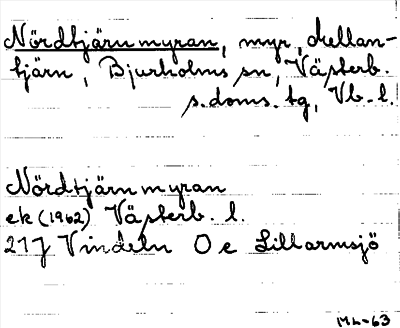 Nördtjärnmyran, myr, Mellan-
tjärn, Bjurholms sn, Västerb.
s.doms. tg, Vb. l.
Nördtjärnmyran
ek (1962) Västerb. l.
21J Vindeln 0 e Lillarmsjö
ML-63